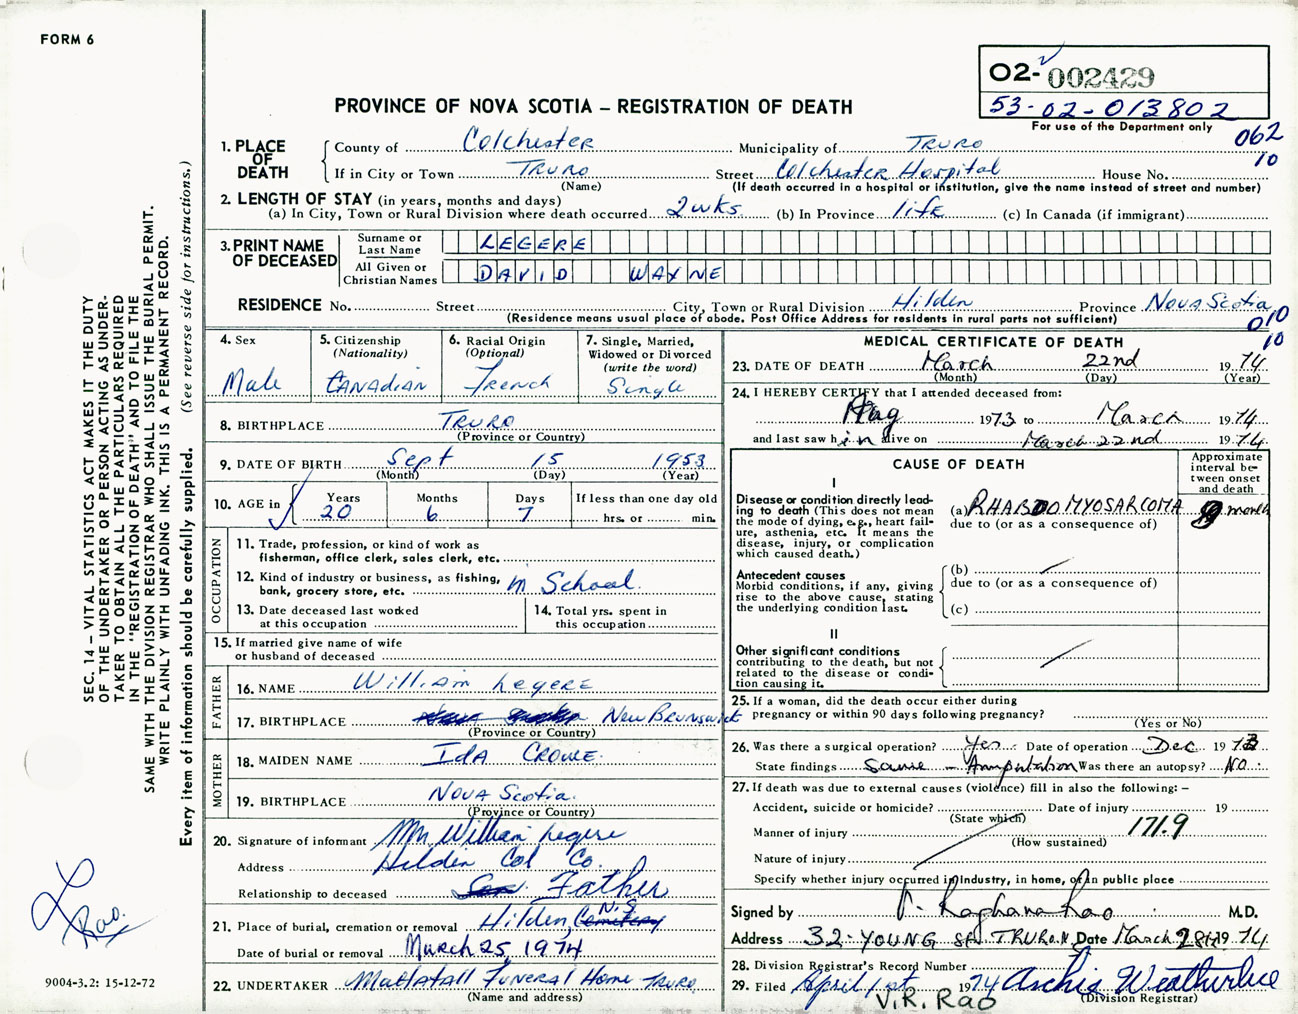 FORM 6
O2- 002429
53-02-013802
For use of the Department only
062
10
PROVINCE OF NOVA SCOTIA – REGISTRATION OF DEATH
1. PLACE OF DEATH
County of Colchester Municipality of Truro
If in City or Town Truro Street Colchester Hospital House No.
(Name) (If death occurred in a hospital or institution, give the name instead of street and number)
2. LENGTH OF STAY (in years, months and days)
(a) In City, Town or Rural Division where death occurred 2 wks. (b) In Province life (c) In Canada (if immigrant)
3. PRINT NAME OF DECEASED
Surname or Last Name LEGERE
All Given or Christian Names DAVID WAYNE
RESIDENCE No. Street City, Town or Rural Division Hilden Province Nova Scotia
(Residence means usual place of abode. Post Office Address for residents in rural parts not sufficient)
010
10
4. Sex
Male
5. Citizenship
(Nationality)
Canadian
6. Racial Origin
(Optional)
French
7. Single, Married,
Widowed or Divorced
(write the word)
Single
8. BIRTHPLACE Truro
(Province or Country)
9. DATE OF BIRTH Sept 15 1953
(Month) (Day) (Year)
10. AGE in
Years Months Days If less than one day old
20 6 7 hrs. or min.
OCCUPATION
11. Trade, profession, or kind of work as
fisherman, office clerk, sales clerk, etc.
12. Kind of industry or business, as fishing,
bank, grocery store, etc. In School.
13. Date deceased last worked
at this occupation
14. Total yrs. spent in
this occupation
15. If married give name of wife
or husband of deceased
FATHER
16. NAME William Legere
17. BIRTHPLACE New Brunswick
(Province or Country)
MOTHER
18. MAIDEN NAME Ida Crowe.
19. BIRTHPLACE Nova Scotia.
(Province or Country)
20. Signature of informant Mr William Legere
Address Hilden Col Co.
Relationship to deceased Father
21. Place of burial, cremation or removal Hilden, Cemetery N.S
Date of burial or removal March 25, 1974
22. UNDERTAKER Mattatall Funeral Home Truro.
(Name and address)
MEDICAL CERTIFICATE OF DEATH
23. DATE OF DEATH March 22nd 1974
(Month) (Day) (Year)
24. I HEREBY CERTIFY that I attended deceased from:
Aug 1973 to March 1974
and last saw him alive on March 22nd 1974
CAUSE OF DEATH
Approximate interval between onset and death
I
Disease or condition directly leading to death (This does not mean the mode of dying, e.g., heart failure, asthenia, etc. It means the disease, injury, or complication which caused death.)
(a) RHABDOMYOSARCOMA 9 months
due to (or as a consequence of)
Antecedent causes
Morbid conditions, if any, giving rise to the above cause, stating the underlying condition last.
(b)
due to (or as a consequence of)
(c)
II
Other significant conditions
contributing to the death, but not related to the disease or condition causing it.
25. If a woman, did the death occur either during
pregnancy or within 90 days following pregnancy?
(Yes or No)
26. Was there a surgical operation? Yes Date of operation Dec 1973
State findings Same - Amputation Was there an autopsy? NO
27. If death was due to external causes (violence) fill in also the following: –
Accident, suicide or homicide? Date of injury 19
(State which)
Manner of injury 171.9
(How sustained)
Nature of injury
Specify whether injury occurred in industry, in home, or in public place
Signed by V. Raghava Rao M.D.
Address 32 YOUNG St. TRURO. N Date March 28th 1974
28. Division Registrar's Record Number
29. Filed April 1st 1974 Archie Weatherbee
(Division Registrar)
V.R. Rao
SEC. 14 – VITAL STATISTICS ACT MAKES IT THE DUTY
OF THE UNDERTAKER OR PERSON ACTING AS UNDER-
TAKER TO OBTAIN ALL THE PARTICULARS REQUIRED
IN THE "REGISTRATION OF DEATH" AND TO FILE THE
SAME WITH THE DIVISION REGISTRAR WHO SHALL ISSUE THE BURIAL PERMIT.
WRITE PLAINLY WITH UNFADING INK. THIS IS A PERMANENT RECORD.
Every item of information should be carefully supplied. (See reverse side for instructions.)
Rao.
9004-3.2: 15-12-72